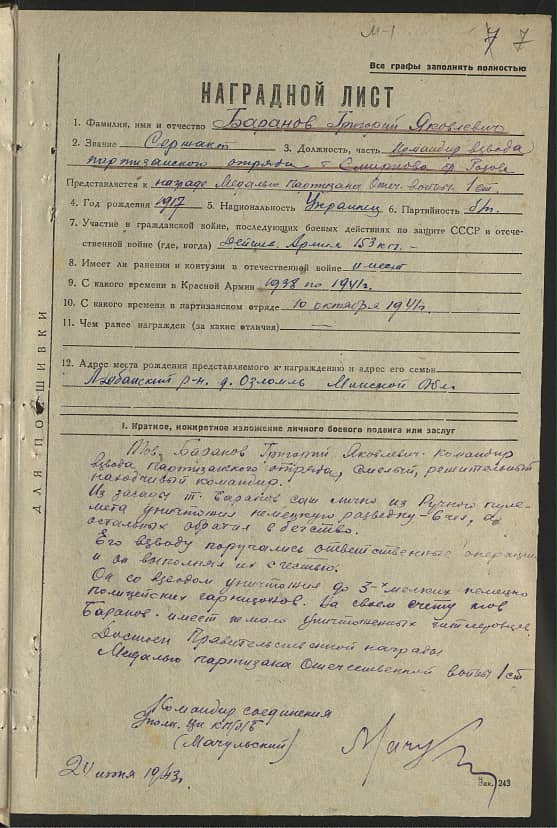 М-1
7 7
Все графы заполнять полностью
НАГРАДНОЙ ЛИСТ
1. Фамилия, имя и отчество Баранов Григорий Яковлевич
2. Звание Сержант 3. Должность, часть Командир взвода
партизанского отряда т. Смирнова
Представляется к награде Медалью Партизана Отеч. войны 1 ст.
4. Год рождения 1917 5. Национальность Украинец 6. Партийность б/п.
7. Участие в гражданской войне, последующих боевых действиях по защите СССР и отече-
ственной войне (где, когда) Действ. Армия 153 к.п. –
8. Имеет ли ранения и контузии в отечественной войне имеет
9. С какого времени в Красной Армии 1938 по 1941г.
10. С какого времени в партизанском отряде 10 октября 1941г.
11. Чем ранее награжден (за какие отличия) —
12. Адрес места рождения представляемого к награждению и адрес его семьи
Любанский р-н. д. Озломль Минской Обл.
ДЛЯ ПОДШИВКИ
I. Краткое, конкретное изложение личного боевого подвига или заслуг
Тов. Баранов Григорий Яковлевич командир
взвода партизанского отряда, смелый, решительный
находчивый командир.
Из засады т. Баранов сам лично из Ручного пуле-
мета уничтожил немецкую разведку – 6 чел, а
остальных обратил в бегство.
Его взводу поручались ответственные операции
и он выполнял их с честью.
Он со взводом уничтожил до 3-х мелких немецко
полицейских гарнизонов. На своем счету тов
Баранов имеет немало уничтоженных гитлеровцев.
Достоин Правительственной награды
Медалью партизана Отечественной войны 1 ст
Командир соединения
Уполн. ЦК КП/б/Б
(Мачульский)
24 июня 1943г.
Зак. 243